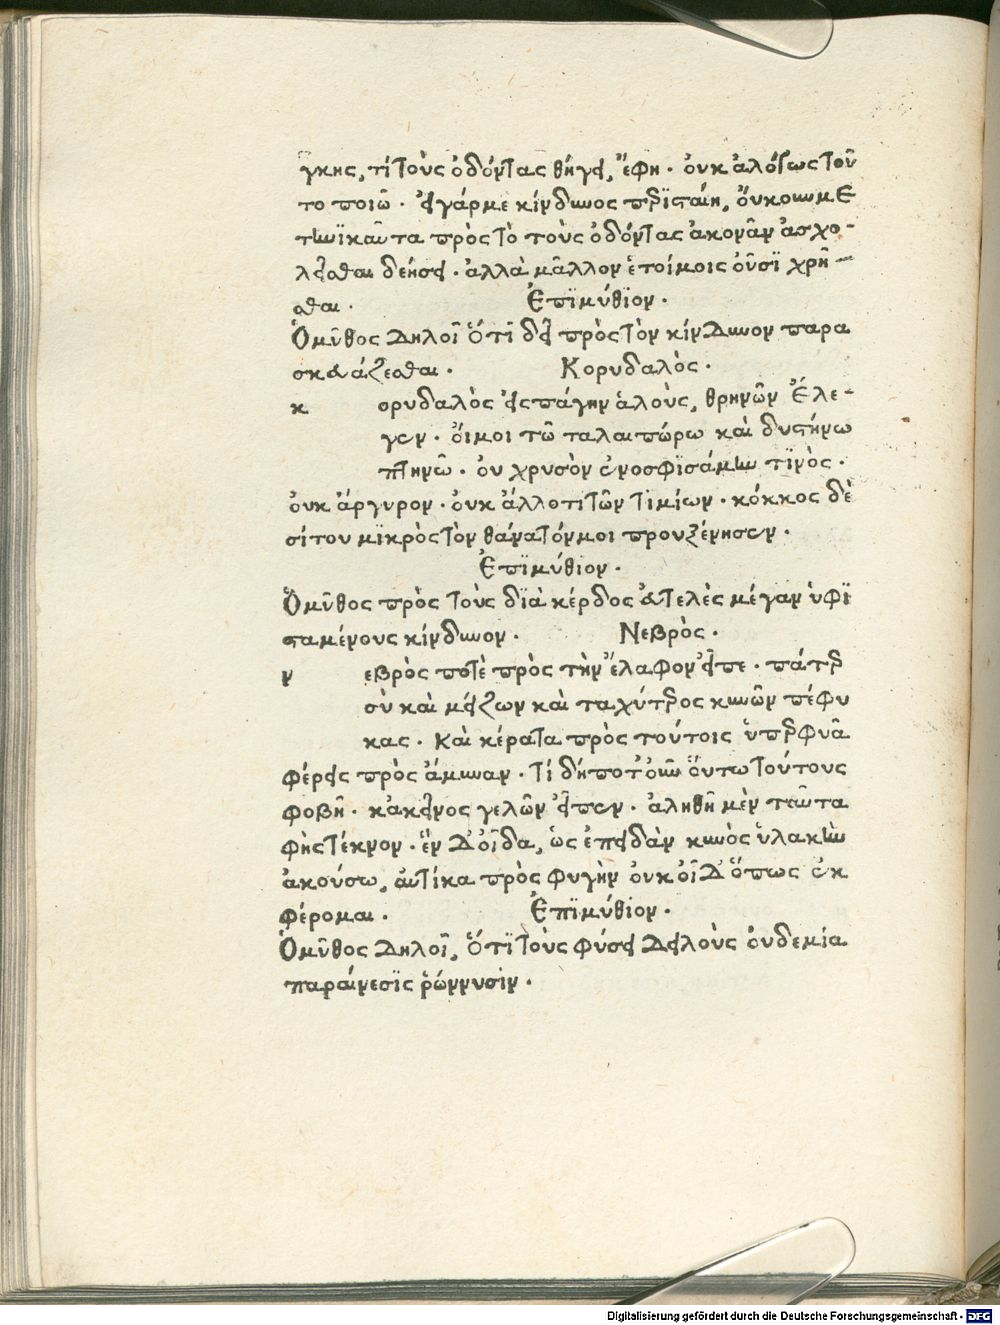 γκης, τί τοὺς ὀδόντας θήγει, ἔφη. οὐκ ἀλόγως τοῦ
το ποιῶ. εἰ γάρ με κίνδυνος περϊσταίη, οὐκουμε
τηνϊκαῦτα πρὸς τὸ τοὺς ὀδόντας ἀκονᾶν ἀσχο-
λεῖσθαι δεήσει. ἀλλὰ μᾶλλον ἑτοίμοις οὖσϊ χρῆ-
σθαι. Ἐπϊμύθϊον.
Ὁ μῦθος δηλοῖ ὅτϊ δεῖ πρὸς τὸν κίνδυνον παρα
σκευάζεσθαι. Κορυδαλὸς.
κ ορυδαλὸς εἰς πάγην ἁλοὺς, θρηνῶν ἔλε-
γεν. οἴμοι τῶ ταλαιπώρω καὶ δυστήνω
πτηνῶ. οὐ χρυσὸν ἐνοσφϊσάμην τϊνὸς.
οὐκ ἄργυρον. οὐκ ἄλλοτι τῶν τιμίων. κόκκος δὲ
σίτου μϊκρὸς τὸν θάνατόν μοι προυξένησεν.
Ἐπϊμύθιον.
Ὁ μῦθος πρὸς τοὺς δϊὰ κέρδος εὐτελὲς μέγαν ὑφϊ
σταμένους κίνδυνον. Νεβρὸς.
ν εβρὸς ποτὲ πρὸς τὴν ἔλαφον εἶπε. πάτερ
σὺ καὶ μείζων καὶ ταχύτερος κυνῶν πέφυ
κας. καὶ κέρατα πρὸς τούτοις ὑπερφυᾶ
φέρεις πρὸς ἄμυναν. τί δήποτ' οὖν οὕτω τούτους
φοβῆ. κἀκεῖνος γελῶν εἶπεν. ἀληθῆ μὲν ταῦτα
φὴς τέκνον. ἓν δ' οἶδα, ὡς ἐπειδὰν κυνὸς ὑλακὴν
ἀκούσω, αὐτίκα πρὸς φυγὴν οὐκ οἶδ' ὅπως ἐκ
φέρομαι. Ἐπϊμύθϊον.
Ὁ μῦθος δηλοῖ, ὅτϊ τοὺς φύσει δειλοὺς οὐδεμία
παραίνεσϊς ῥώννυσϊν.
Digitalisierung gefördert durch die Deutsche Forschungsgemeinschaft - DFG